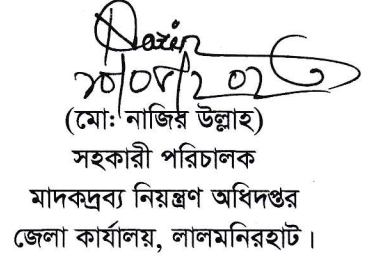 Nazir
(মো: নাজির উল্লাহ)
সহকারী পরিচালক
মাদকদ্রব্য নিয়ন্ত্রণ অধিদপ্তর
জেলা কার্যালয়, লালমনিরহাট।